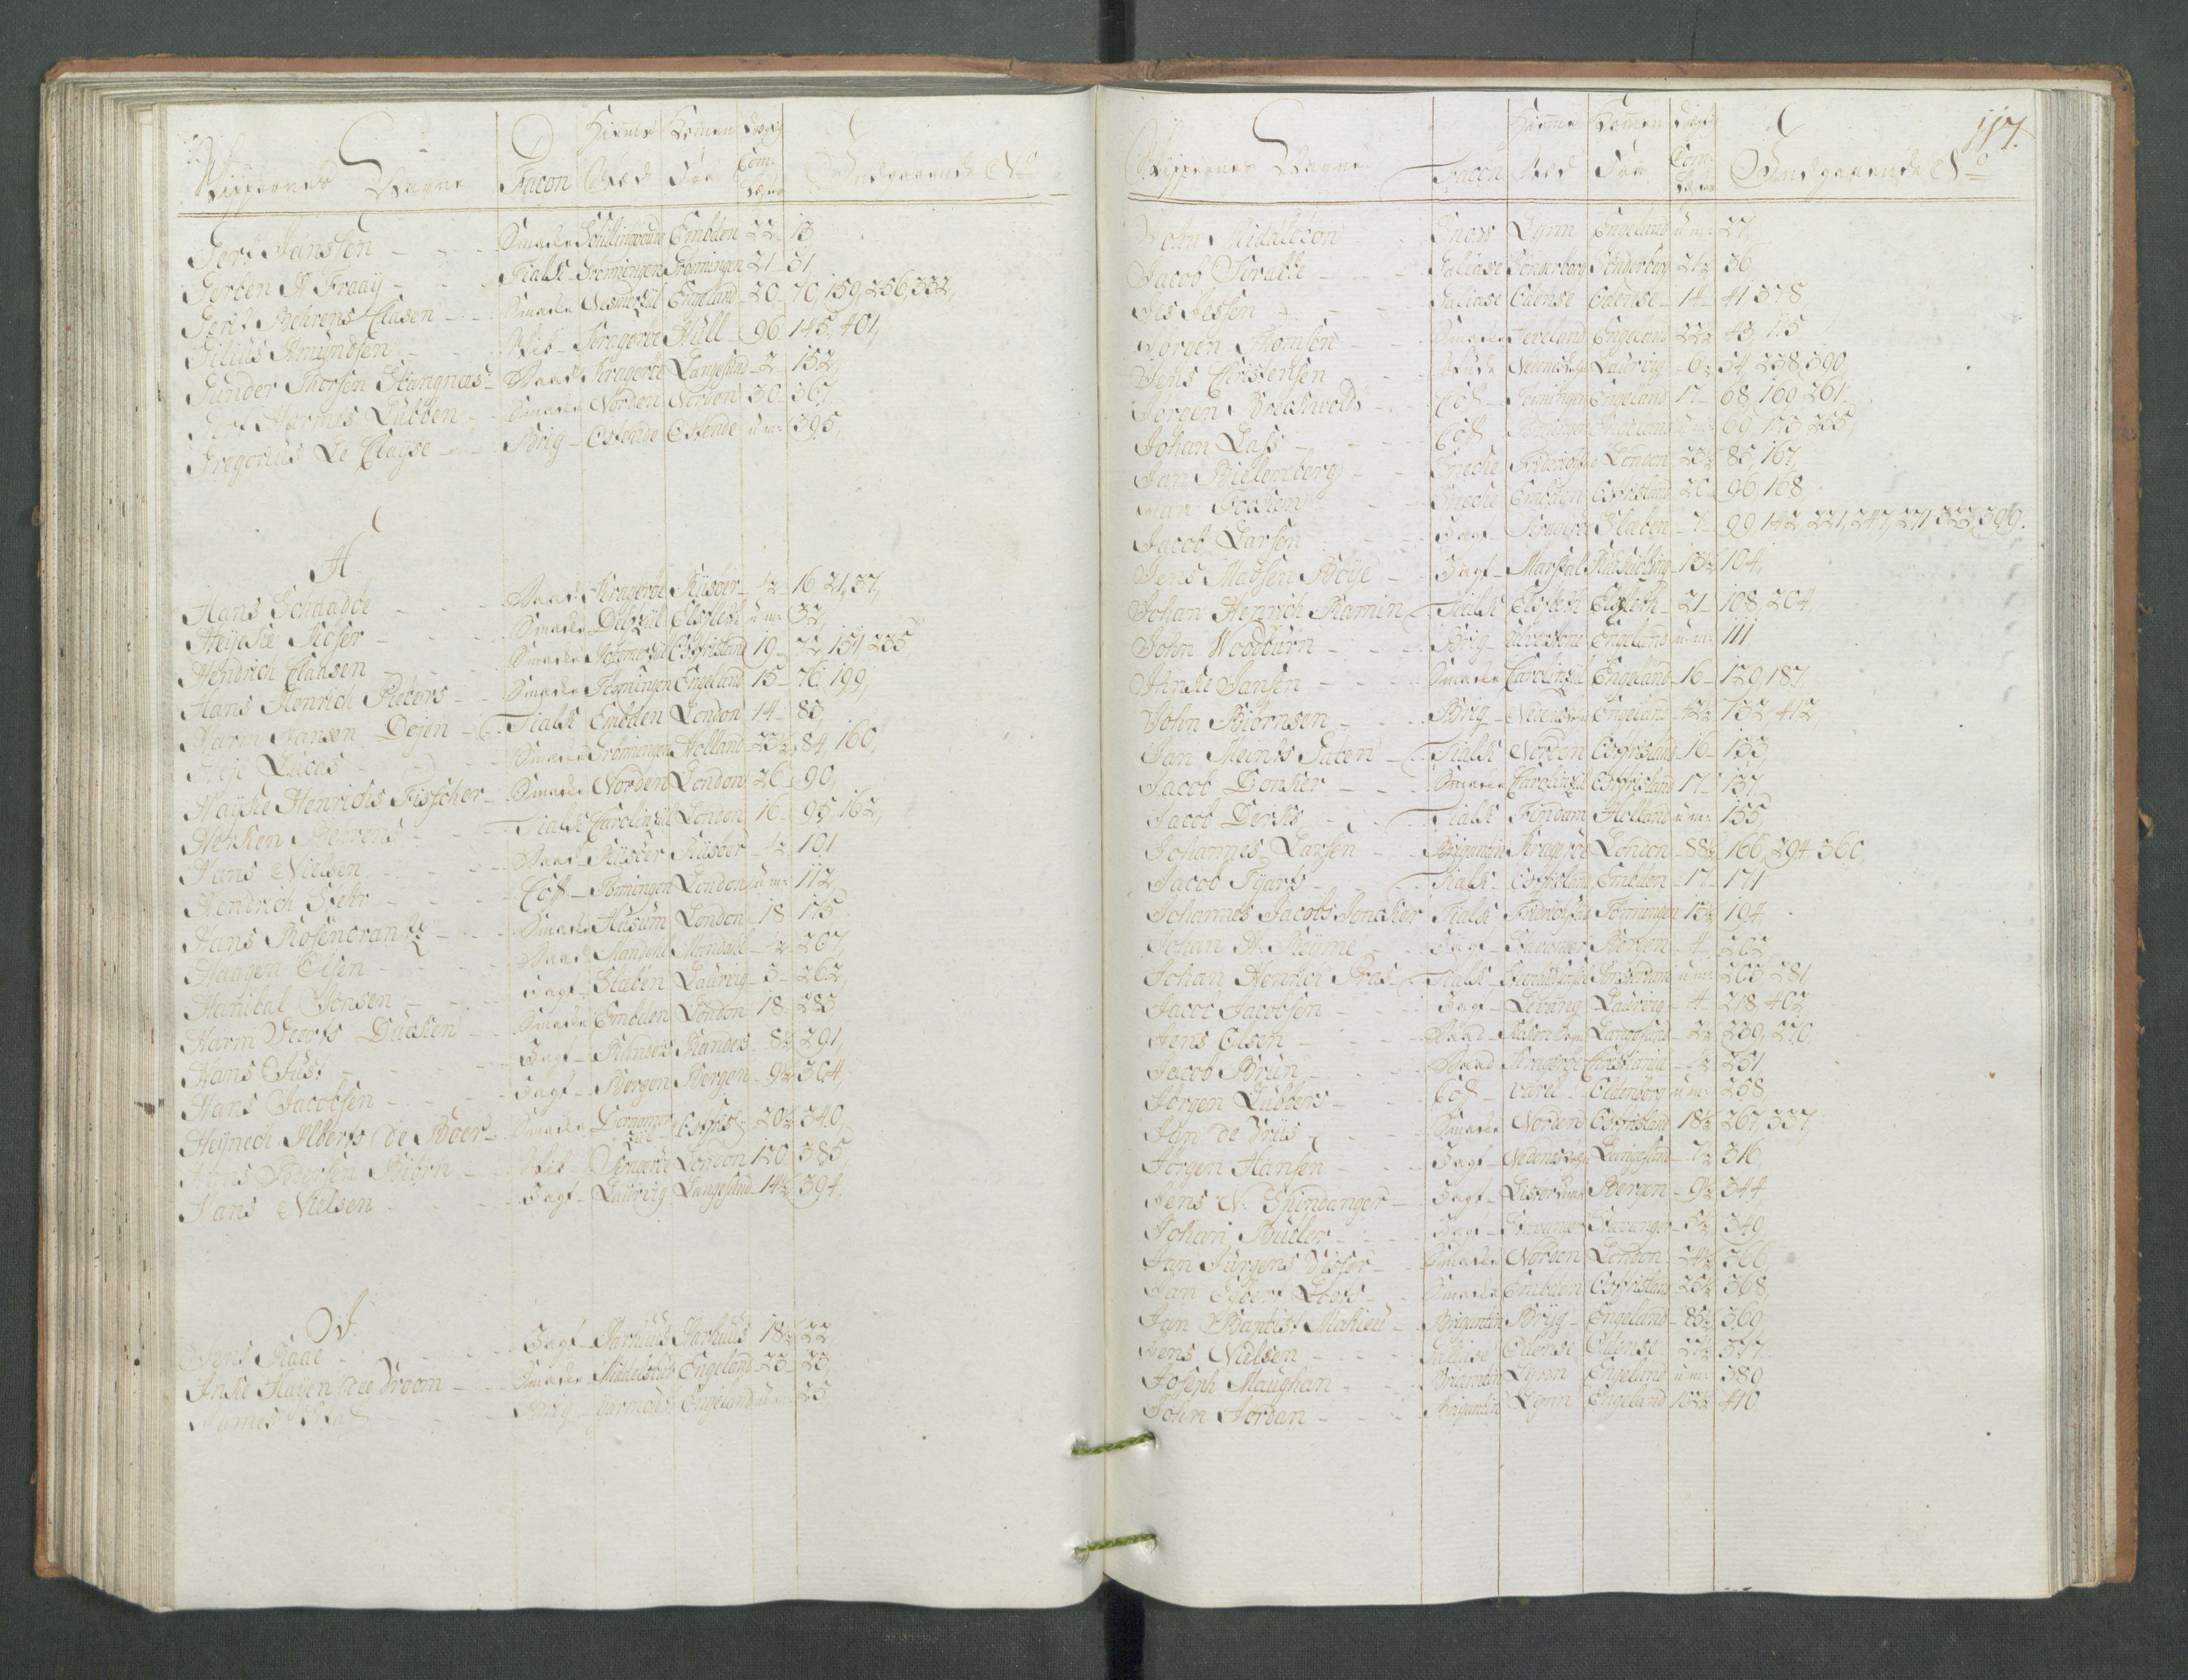 Skippernes Navne Facon Hiemme Stæd Kommen Fra Drægtig Com: Læster Indgaaende No
Gert Janssen Smakke Embden 22 13
Gerben A Fraaÿ Tialk Grönningen Grönningen 21 31
Gerit Behrens Clasen Smakke Engeland 20 70, 159, 256, 332,
Gilius Amundsen Skib Krageröe Hull 96 145, 401,
Gunder Thorsen Stangnæs Baad Krageröe Langesund 2 152,
Gert Harmes Lubben Smakke Norden Norden 30 367,
Gregorius De Clayse Brig Ostende Ostende um: 395,
H.
Hans Schaadde Baad Krageröe Riisöer ½ 16, 21, 37,
Heÿcke Smakke Elsfleth um: 32,
Hendrich Clausen Smakke Ostfrisland 19 72, 151, 235,
Hans Henrich Pieters Smakke Tönningen Engeland 15 76, 199,
Harm Jansen Dojen Tialk Embden London 14 83,
Heje Lucas Smakke Grönningen Holland 23½ 84, 160,
Hayske Henrichs Fisscher Smakke Norden London 26 90,
Behrens Tialk Carolinsiil London 16 95, 162,
Hans Nielsen Baad Riisöer Riisöer ½ 101
Hendrich Stehr Coff Tönningen London um: 112
Hans Rosencrantz Smakke Husum London 18 175
Haagen Olsen Baad Mandahl Mandahl ½ 207,
Hanibal Jensen Jagt Slaben Laurvig 3 262,
Harm Geerts Ducken Smakke Embden London 18 283
Hans Just Jagt Randers Randers 8½ 291,
Hans Jacobsen Jagt Bergen Bergen 9½ 304,
Heÿnech Alberts De Boer Smakke Ostfrisl: 20½ 340,
Hans Pedersen Biörn Skib Krageröe London 120 385,
Hans Nielsen Jagt Laurvig Langesund 14½ 394.
J.
Jens Raae Jagt Aarhuus Aarhuus 18½ 22
Inke Hayen Dee Droom Smakke Engeland 23 23,
James Brig Yarmouth Engeland um: 25
117.
Skippernes Navne Facon Hiemme Stæd Kommen Fra Drægtig Com: Læster Indgaaende No
John Midaleson Snow Lynn Engeland um: 27,
Jacob Galiase Sonderborg Sonderborg 21½ 36
Jes Jessen Galiase Odense Odense 14 41, 378,
Jörgen Thomsen Smakke Engeland 22½ 43, 115
Jens Christensen Laurvig 6½ 54, 238, 390,
Jörgen Coff Tönningen Engeland 17 68, 169, 261.
Johan Lass Coff Tönningen Engeland um: 69, 173, 235,
Jan Bielenberg Snecke London 23½ 85, 167,
Jan Snecke Embden Ostfrisland 20 96, 168
Jacob Larsen Jagt Krageröe Slaben 7 99, 142, 221, 247, 271, 323, 399.
Jens Madsen Boije Jagt Marstal Rudkiöbing 13½ 104,
Johan Henrich Ramin Tialk Elsfleth Elsfleth 21 108, 204,
John Woodburn Brig Ulverstone Engeland um: 111
Jansen Smakke Carolinsiil Engeland 16 129, 187,
John Biörnsen Brig Engeland 42½ 132, 412,
Jan Meints Paten Tialk Norden Ostfrisland 16 133,
Jacob Donker Smakke Carolinsiil Ostfrisland 17 137,
Jacob Derks Tialk Holland um: 155,
Johannes Larsen Brigantin Krageröe London 88½ 166, 294, 360,
Jacob Tjarks Tialk Ostfrisland Embden 17 171
Johannes Jacobs Joncker Tialk Tönningen 15½ 194,
Johan A: Jagt Bergen 4 202
Johan Henrich Tialk Amsterdam um: 203, 281
Jacob Jacobsen Jagt Laurvig 4 218, 402,
Jens Olsen Baad Langesund 2½ 239, 270,
Jacob Brün Baad Krageröe Christiania ½ 251
Jörgen Lübbers Coff Varel Oldenborg um: 258,
Jan De Vriis Smakke Norden Ostfrisland 18½ 267, 337,
Jörgen Hansen Jagt Langesund 7½ 316,
Jens N: Spindanger Jagt Bergen 9½ 344
Johan Jagt Stavanger Stavanger 5½ 349
Jan Jürgens Visser Smakke Norden London 24½ 366,
Jan Egbert Smakke Embden Ostfrisland 25½ 368,
Jan Baptist Mahieu Brigantin Brüg Engeland 85½ 369,
Jens Nielsen Galiase Odense Odense 22½ 377,
Joseph Maughan Brigantin Lynn Engeland um: 389
John Jordan Brigantin Lynn Engeland 102½ 410.